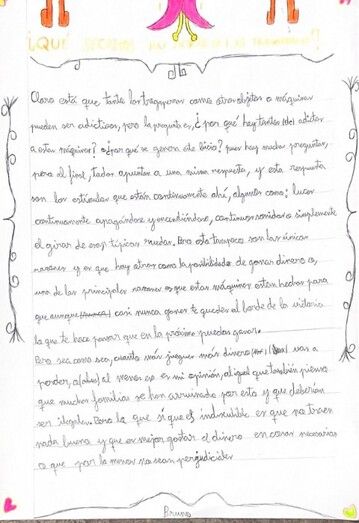 ¿QUÉ
Claro está que tanto los tragaperras como otros objetos o máquinas
pueden ser adictivos, pero la pregunta es, ¿por qué hay tantos adictos
a estas máquinas? o ¿por qué se genera ese vicio? pues hay muchas preguntas,
pero al final, todos apuntan a una misma respuesta, y esta respuesta
son los estímulos que están continuamente ahí, algunos como; luces
continuamente apagándose y encendiéndose, continuos sonidos o simplemente
el girar de esas típicas ruedas. Pero esto tampoco son las únicas
razones y es que hay otras como la posibilidad de ganar dinero o
una de las principales razones es que estas máquinas están hechas para
que aunque casi nunca ganes te quedes al borde de la victoria
lo que te hace pensar que en la próxima puedas ganar.
Pero sea como sea, cuanto más juegues más dinero vas a
perder, al menos es mi opinión, al igual que también pienso
que muchas familias se han arruinado por esto y que deberían
ser ilegales. Pero lo que sí que es indiscutible es que no traen
nada bueno y que es mejor gastar el dinero en cosas necesarias
o que por lo menos no sean perjudiciales
Bruno